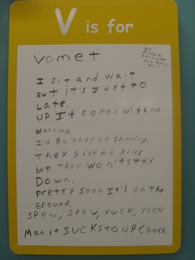 V is for
vomet
I sit and wait
But it's Just to
Late.
UP It comes with no
warning
I'd Rather be Snoring.
They give me Pills
but They won't stay
Down.
Pretty soon It's on The
Ground.
SPew, SPew, YUCK, YUCK
Man it SUCKS to UPchuck